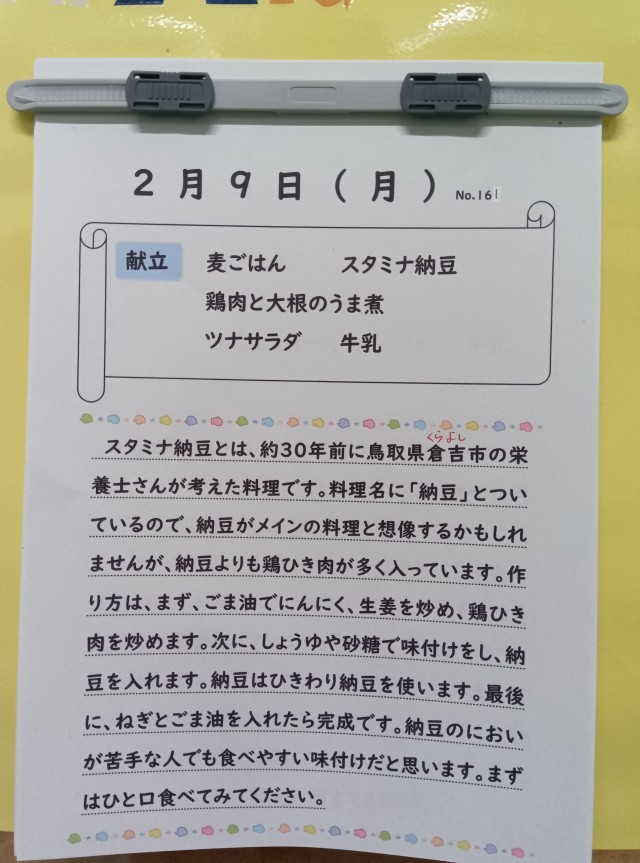 2月9日（月） No.161
献立 麦ごはん スタミナ納豆
鶏肉と大根のうま煮
ツナサラダ 牛乳
くらよし
スタミナ納豆とは、約30年前に鳥取県倉吉市の栄
養士さんが考えた料理です。料理名に「納豆」とつい
ているので、納豆がメインの料理と想像するかもしれ
ませんが、納豆よりも鶏ひき肉が多く入っています。作
り方は、まず、ごま油でにんにく、生姜を炒め、鶏ひき
肉を炒めます。次に、しょうゆや砂糖で味付けをし、納
豆を入れます。納豆はひきわり納豆を使います。最後
に、ねぎとごま油を入れたら完成です。納豆のにおい
が苦手な人でも食べやすい味付けだと思います。まず
はひと口食べてみてください。